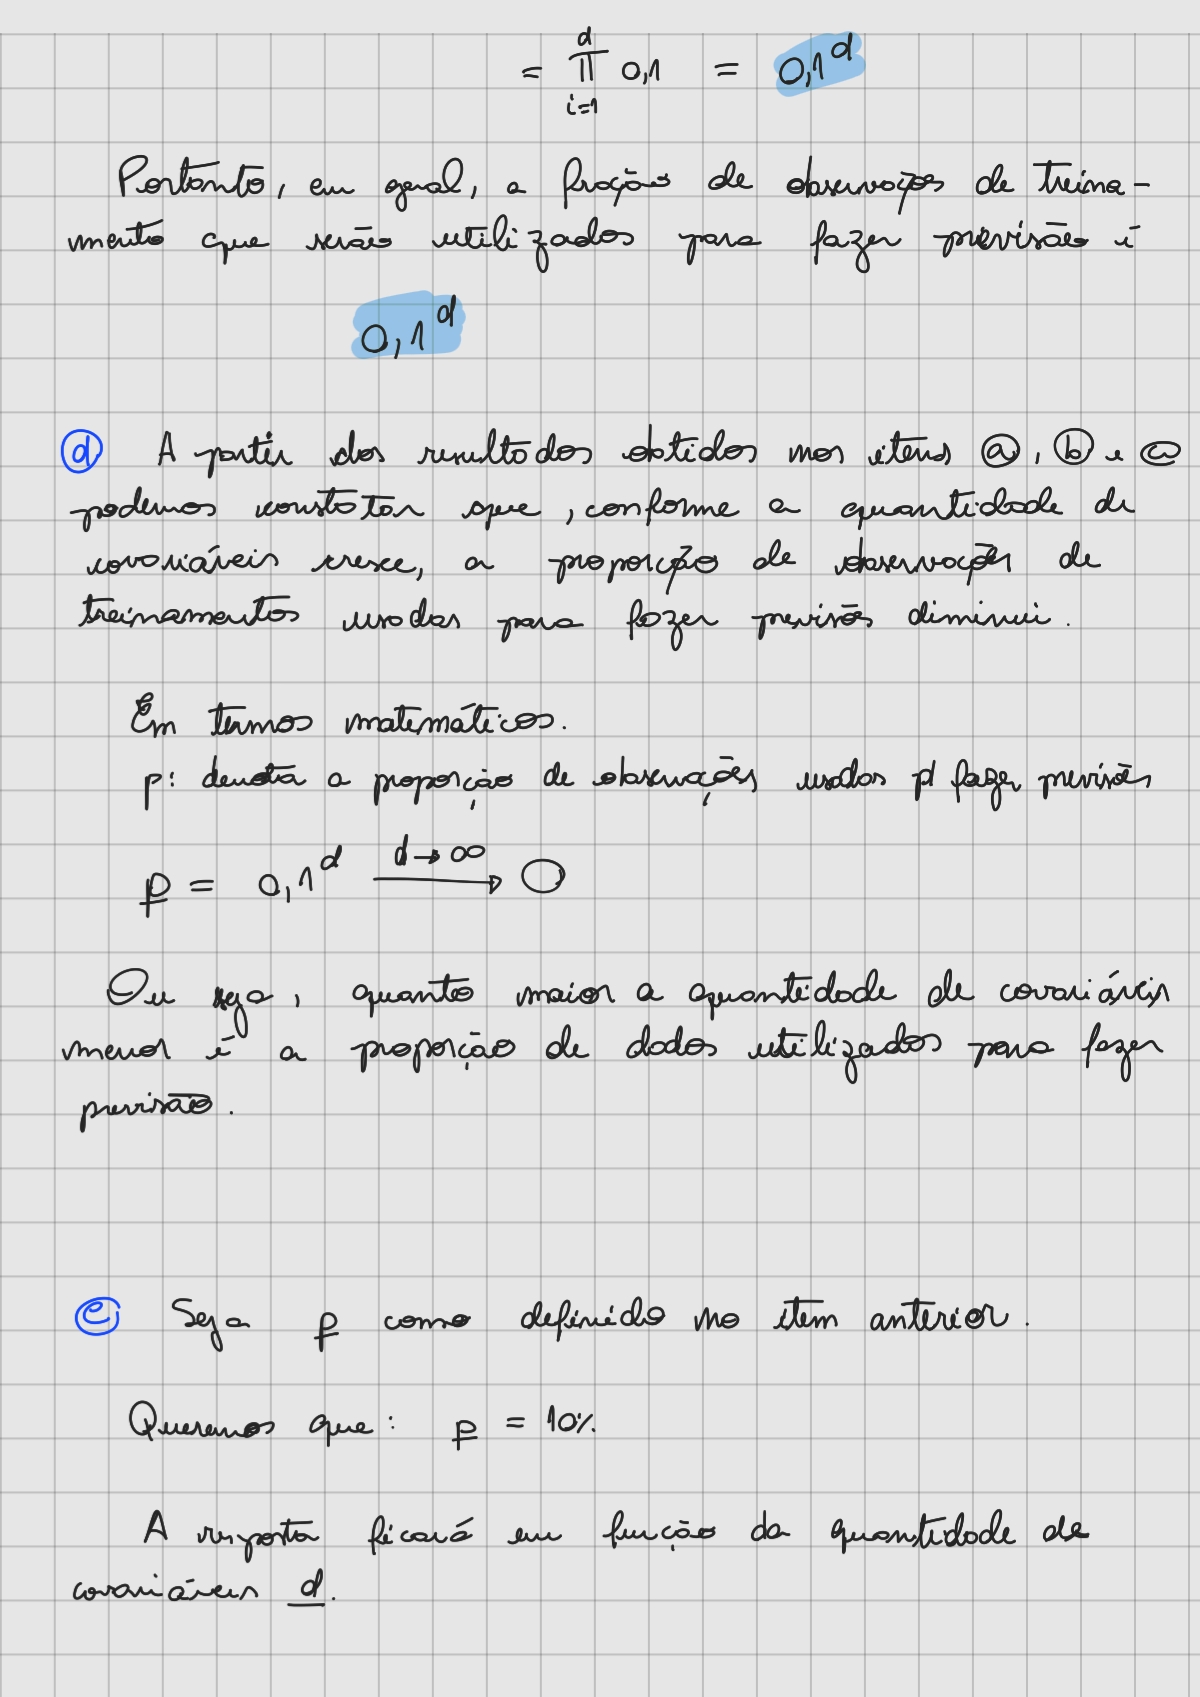 = ∏_{i=1}^{d} 0,1 = 0,1^d
Portanto, em geral, a fração de observações de treina-
mento que serão utilizados para fazer previsão é
0,1^d
(d) A partir dos resultados obtidos nos itens (a), (b) e (c)
podemos constatar que, conforme a quantidade de
covariáveis cresce, a proporção de observações de
treinamento usadas para fazer previsões diminui.
Em termos matemáticos.
p: denota a proporção de observações usados p/ fazer previsões
p = 0,1^d \xrightarrow{d→∞} 0
Ou seja, quanto maior a quantidade de covariáveis
menor é a proporção de dados utilizados para fazer
previsão.
(e) Seja p como definido no item anterior.
Queremos que: p = 10%.
A resposta ficará em função da quantidade de
covariáveis d.